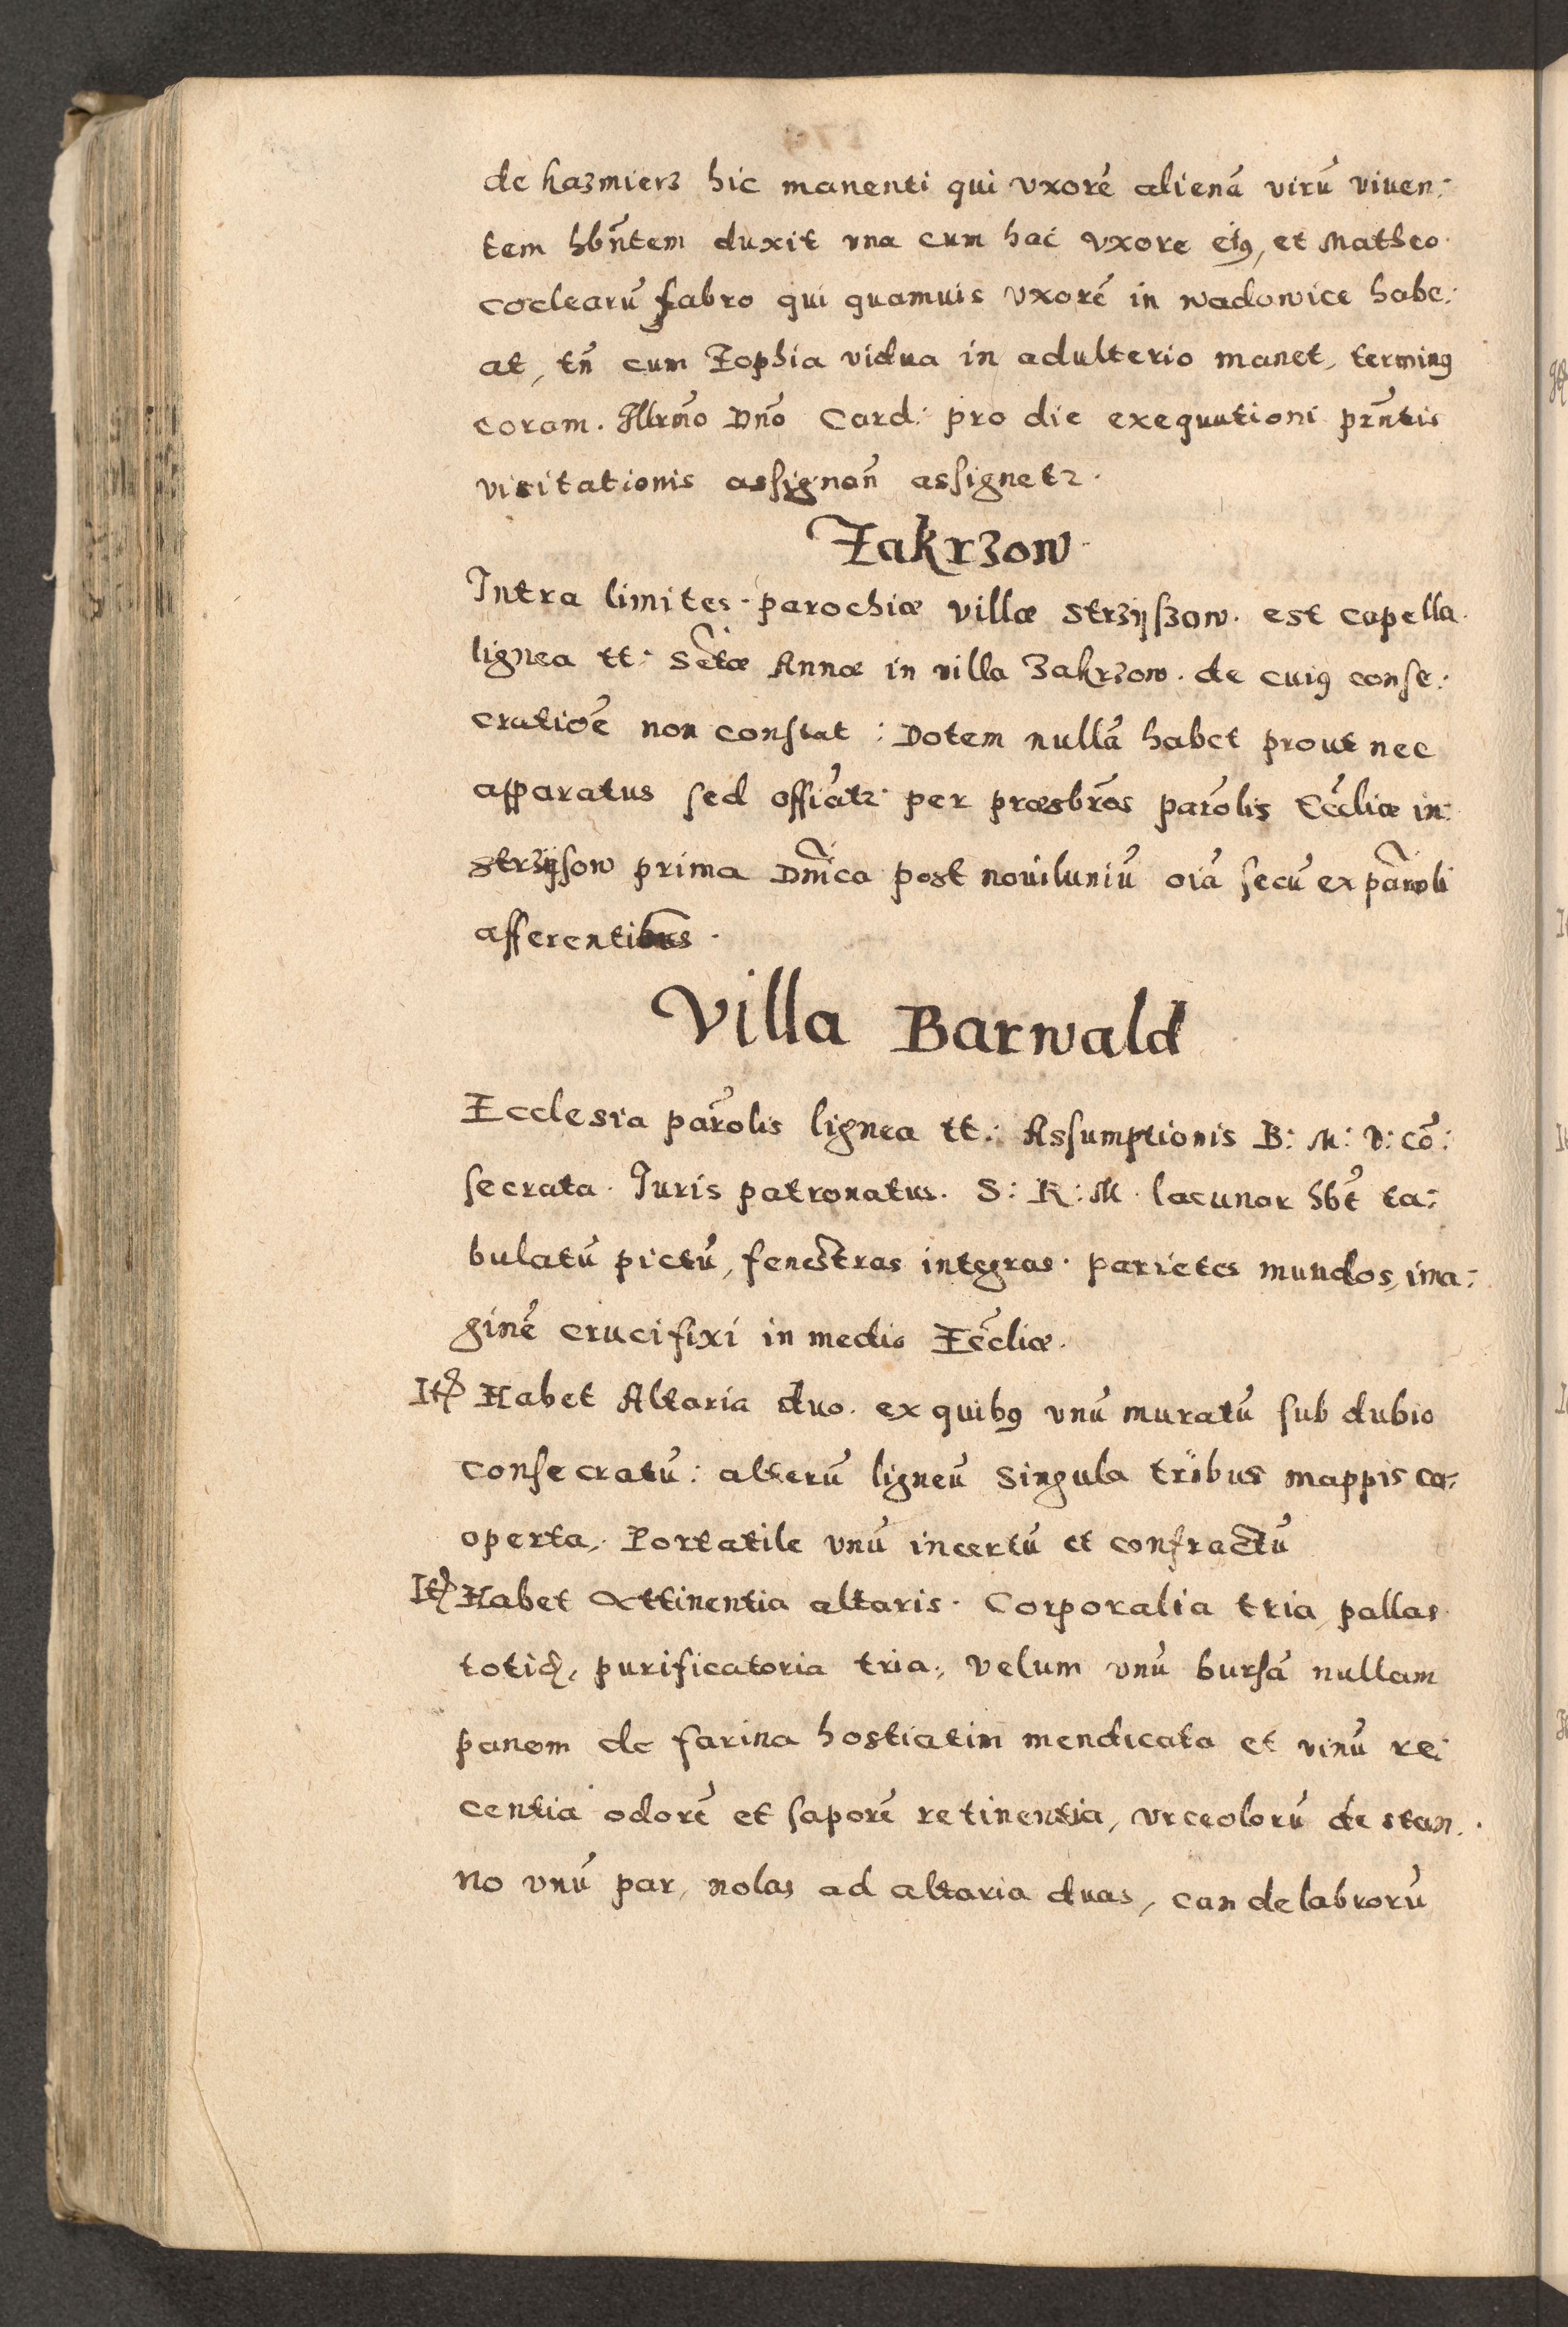 de kazmierz hic manenti qui vxorē alienā virū viuen:
tem hbñtem duxit vna cum hac vxore eiꝯ, et Matheo
coclearū fabro qui quamuis vxorē in wadowice habe:
at, tñ cum Zophia vidua in adulterio manet, terminꝯ
coram. Illrm̃o Dnõ Card: pro die exequutioni prñtis
visitationis assignañ assignetꝛ.
Zakrzow
Intra limites parochiæ villæ Strzijszow. est capella
lignea tt: Sc̃tæ Annæ in villa Zakrzow. de cuiꝯ conse:
cratiõe non constat: Dotem nullā habet prout nec
apparatus sed offiãtꝛ per præsbrõs parõlis Ecc̃liæ in
Strzijsow prima Dnĩca post nouiluniū oĩa secū ex parõli
afferentibus.
Villa Barwald
Ecclesia parõlis lignea tt: Assumptionis B: M: V: cō:
secrata. Iuris patronatus. S: R: M. lacunar hb̃t ta:
bulatū pictū, fenestras integras. parietes mundos, ima:
ginē crucifixi in medio Ecc̃liæ.
Itꝫ Habet Altaria duo. ex quibꝯ vnū muratū sub dubio
consecratū: alterū ligneū Singula tribus mappis co:
operta, Portatile vnū incertū et confractū
Itꝫ Habet Attinentia altaris. Corporalia tria, pallas
totiđ, purificatoria tria, velum vnū bursā nullam
panem de farina hostiatim mendicata et vinū re:
centia odorē et saporē retinentia, vrceolorū de stan:
no vnū par, nolas ad altaria duas, candelabrorū